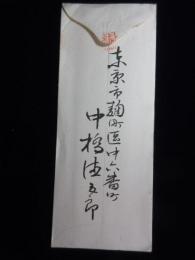 東京市麹町區中六番町
中橋徳五郎